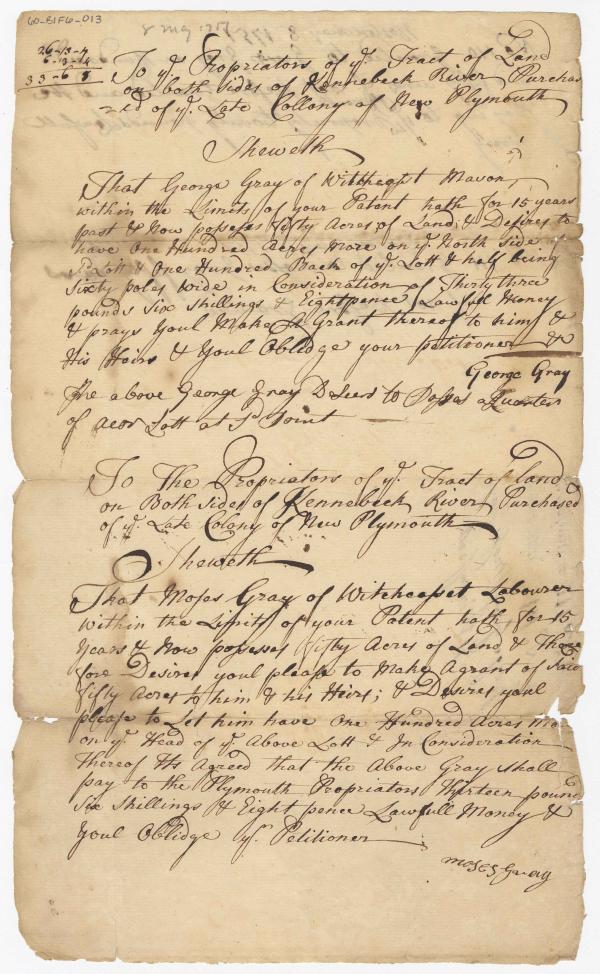 60-B1F6-013
26-13-4
6-13-4
33-6-8
To yͤ Propriators of yͤ Tract of Land
on both sides of Kennebeck River Purchas
=ed of yͤ Late Collony of New Plymouth
Sheweth
That George Gray of Witthcasst Mason,
within the Limits of your Patent hath for 15 years
past & Now possess fifty Acres of Land; & Desires to
have one Hundred Acres more on yͤ North Side of
Sᵈ Lott & One Hundred Back of yͤ Lott & half being
Sixty poles wide in Consideration of Thirtythree
pounds Six Shillings & Eightpence Lawfull Money
& prays Youl Make A Grant thereof to him &
His Heirs & Youl Oblidge your petitioner &
George Gray
The above George Gray Desiers to Posses a Quarter
of Lott at Sᵈ Point
To The Propriators of yͤ Tract of land
on Both sides of Kennebeck River Purchased
of yͤ Late Colony of New Plymouth
Sheweth
That Moses Gray of Witchcasset Labourer
within the Limits of your Patent hath, for 15
Years & Now possesses fifty Acres of Land & There
fore Desires youl please to Make A grant of Said
fifty Acres to him & his Heirs; & Desires youl
please to Let him have One Hundred Acres Mo
on yͤ Head of yͤ Above Lott & In Consideration
thereof Its Agreed that the Above Gray shall
pay to the Plymouth Propriators Thirteen pound
Six Shillings & Eight pence Lawfull Money &
Youl Oblidge yͬ Petitioner
moses Gray